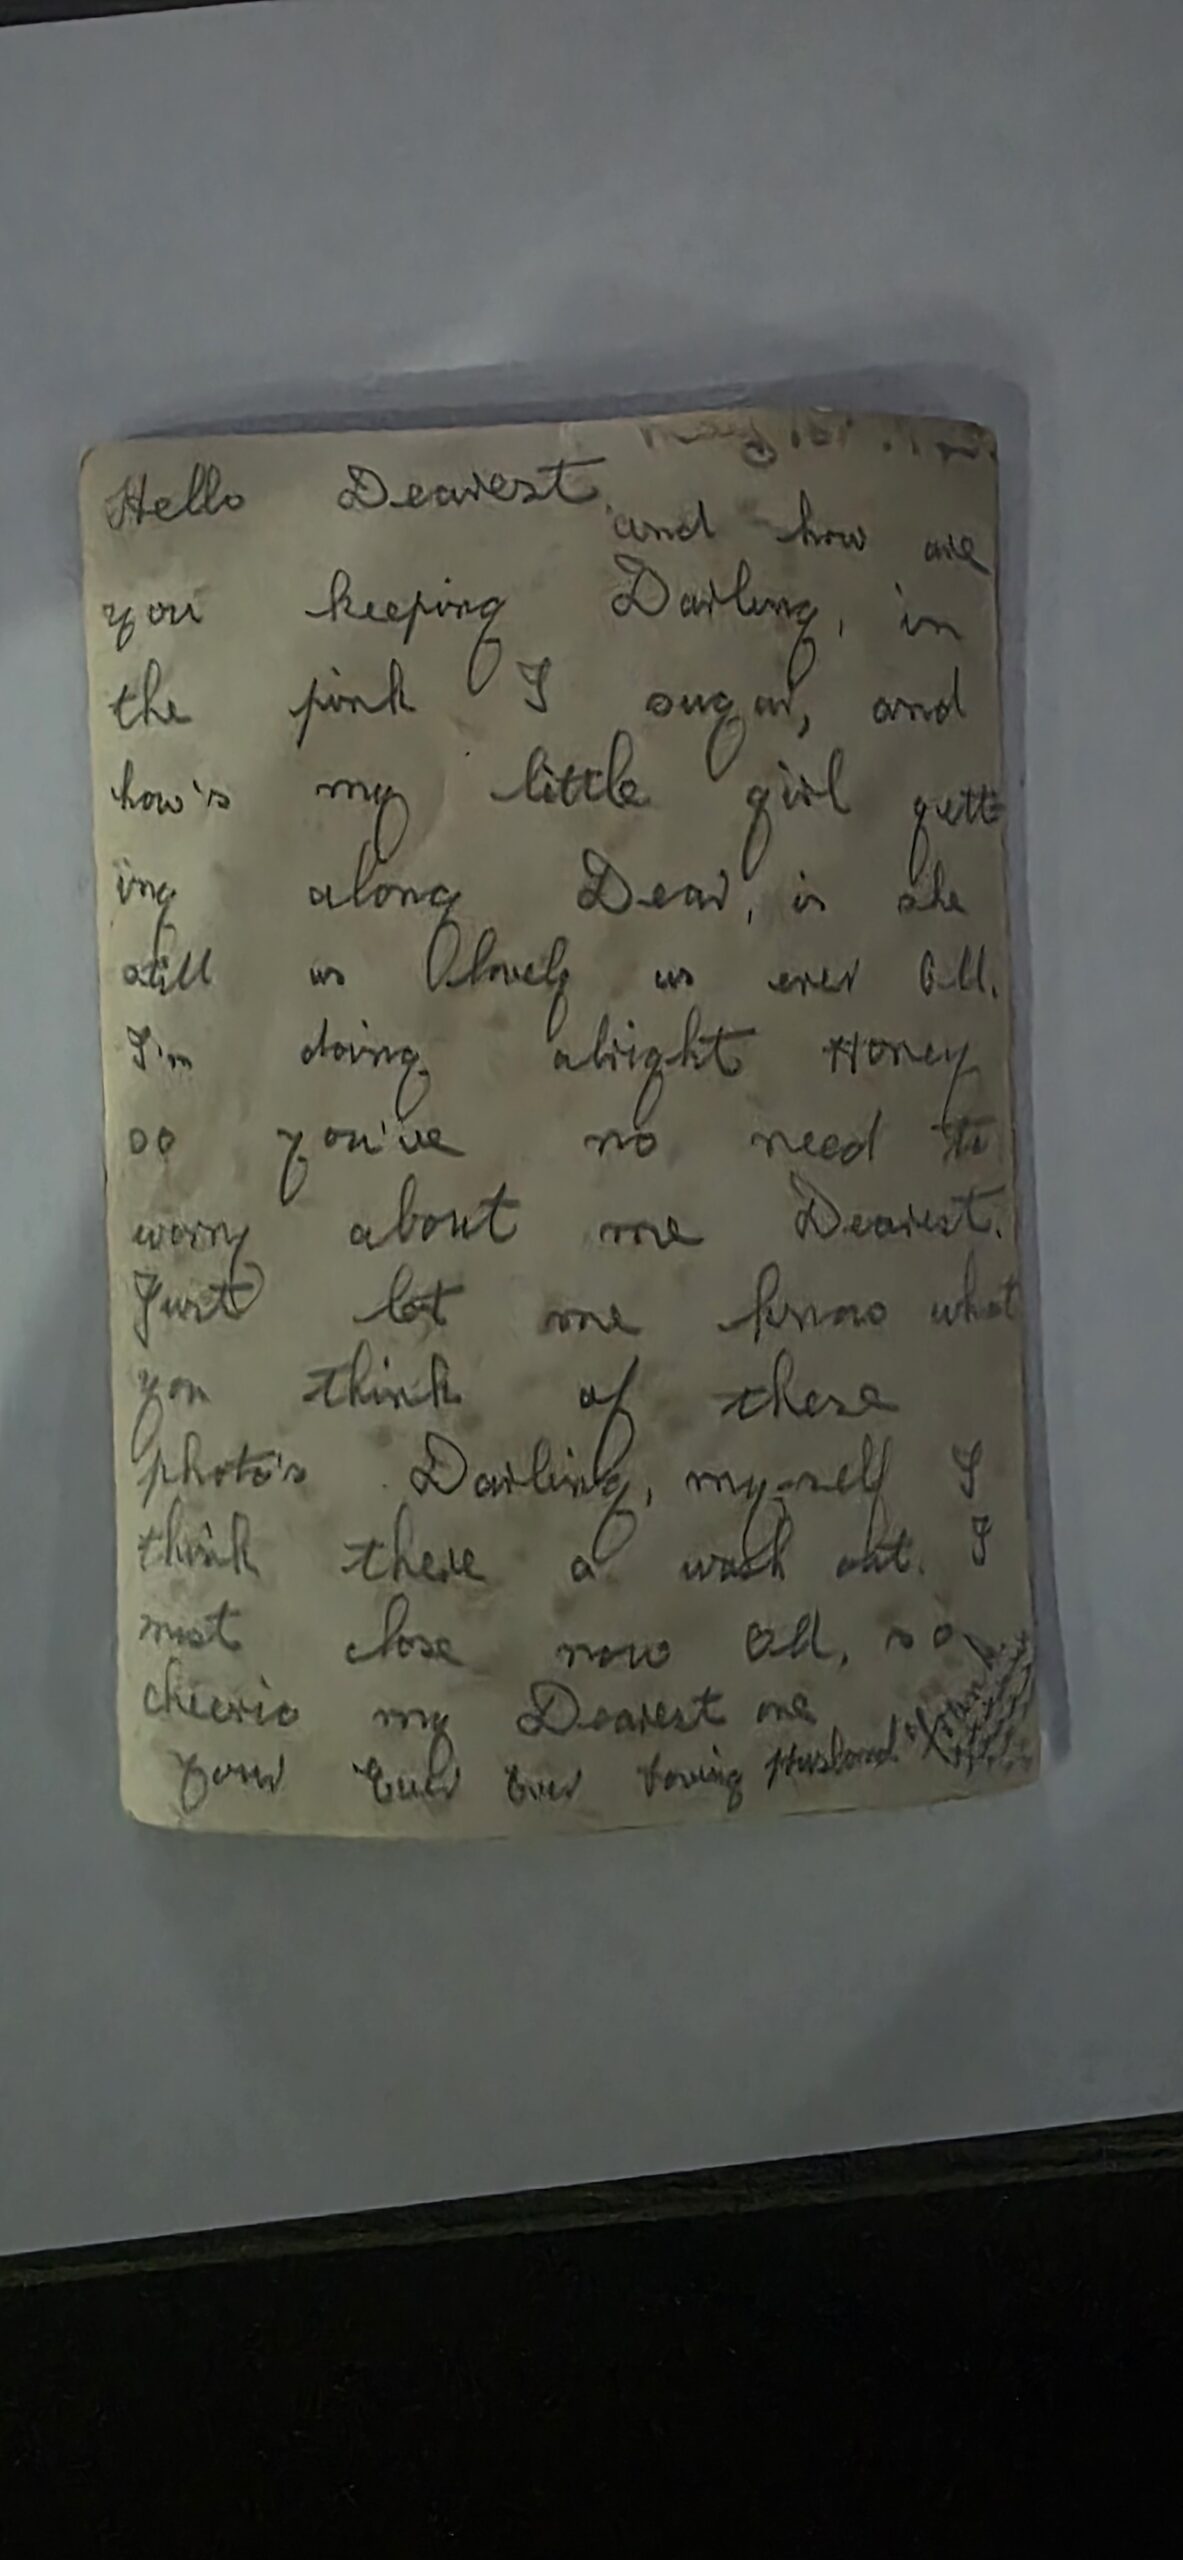 May
Hello Dearest,
and how are
you keeping Darling, in
the pink I sugar, and
how's my little girl gett-
ing along Dear, is she
still as lovely as ever
I'm doing alright Honey
so you've no need to
worry about me Dearest.
Just let me know what
you think of these
photo's Darling, myself I
think there a wash out. I
must close now so
cheerio my Dearest one
Your Ever loving Husband